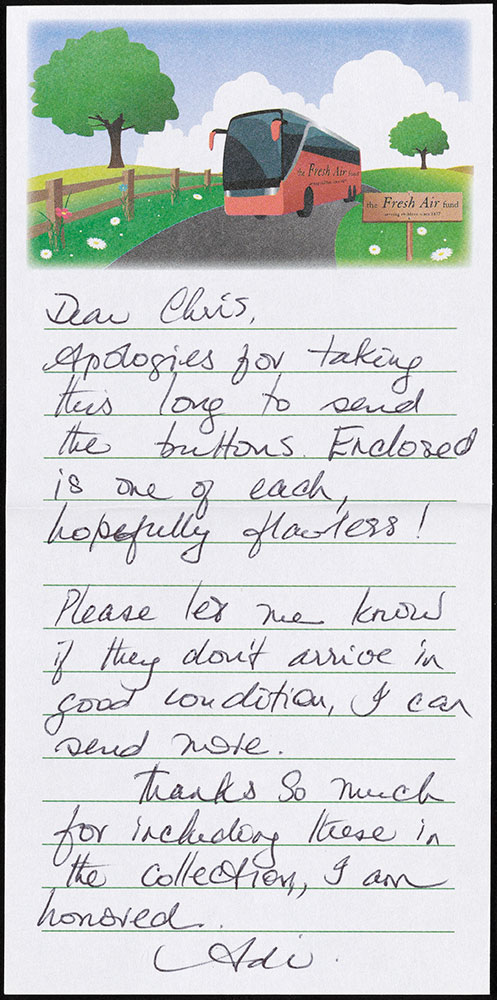 the Fresh Air fund
the Fresh Air fund
serving children since 1877
Dear Chris,
Apologies for taking
this long to send
the buttons. Enclosed
is one of each,
hopefully flawless!
Please let me know
if they don't arrive in
good condition, I can
send more.
Thanks so much
for including these in
the collection, I am
honored.
Adi.